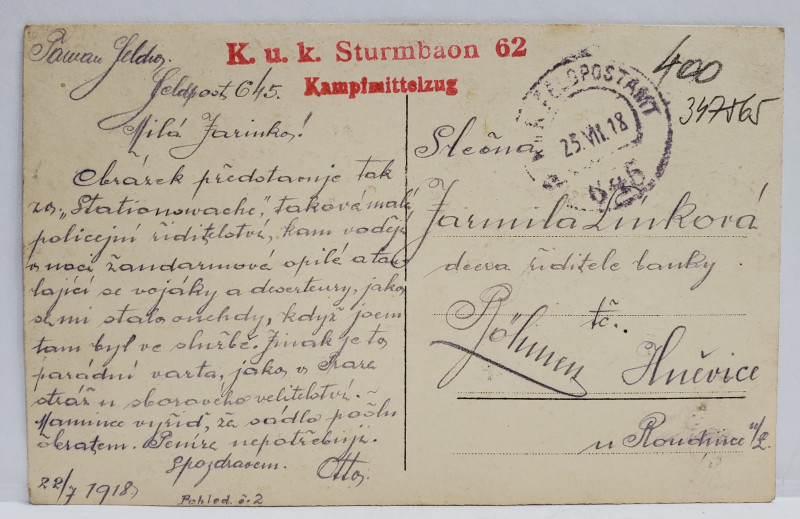 K. u. k. Sturmbaon 62
Kampfmittelzug
Feldpost 645.
Milá Jarinko!
Obrázek představuje tak
zv. „Stationswache", takové malé
policejní řiditelství, kam vodějí
v noci žandarmové opilé a tou-
lající se vojáky a deserteury, jako
se mi stalo onehdy, když jsem
tam byl ve službě. Jinak je to
parádní varta, jako v Praze
stráž u sborového velitelství.
Mamince vyřiď, že sádlo pošlu
obratem. Peníze nepotřebuji.
S pozdravem. Otto
22/7 1918
Pohled. č. 2
K. u. K. FELDPOSTAMT
25.VII.18
645
400
347565
Slečna
Jarmila Línková
dcera řiditele banky
tč.
Böhmen
Hněvice
u Roudnice n/L.